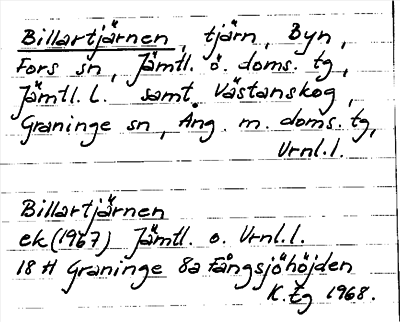 Billartjärnen, tjärn, Byn,
Fors sn, Jämtl. ö. doms. tg,
Jämtl. l. samt Västanskog,
Graninge sn, Ång. m. doms. tg,
Vrnl. l.
Billartjärnen
ek (1967) Jämtl. o. Vrnl. l.
18 H Graninge 8a Fångsjöhöjden
K. Eg 1968.